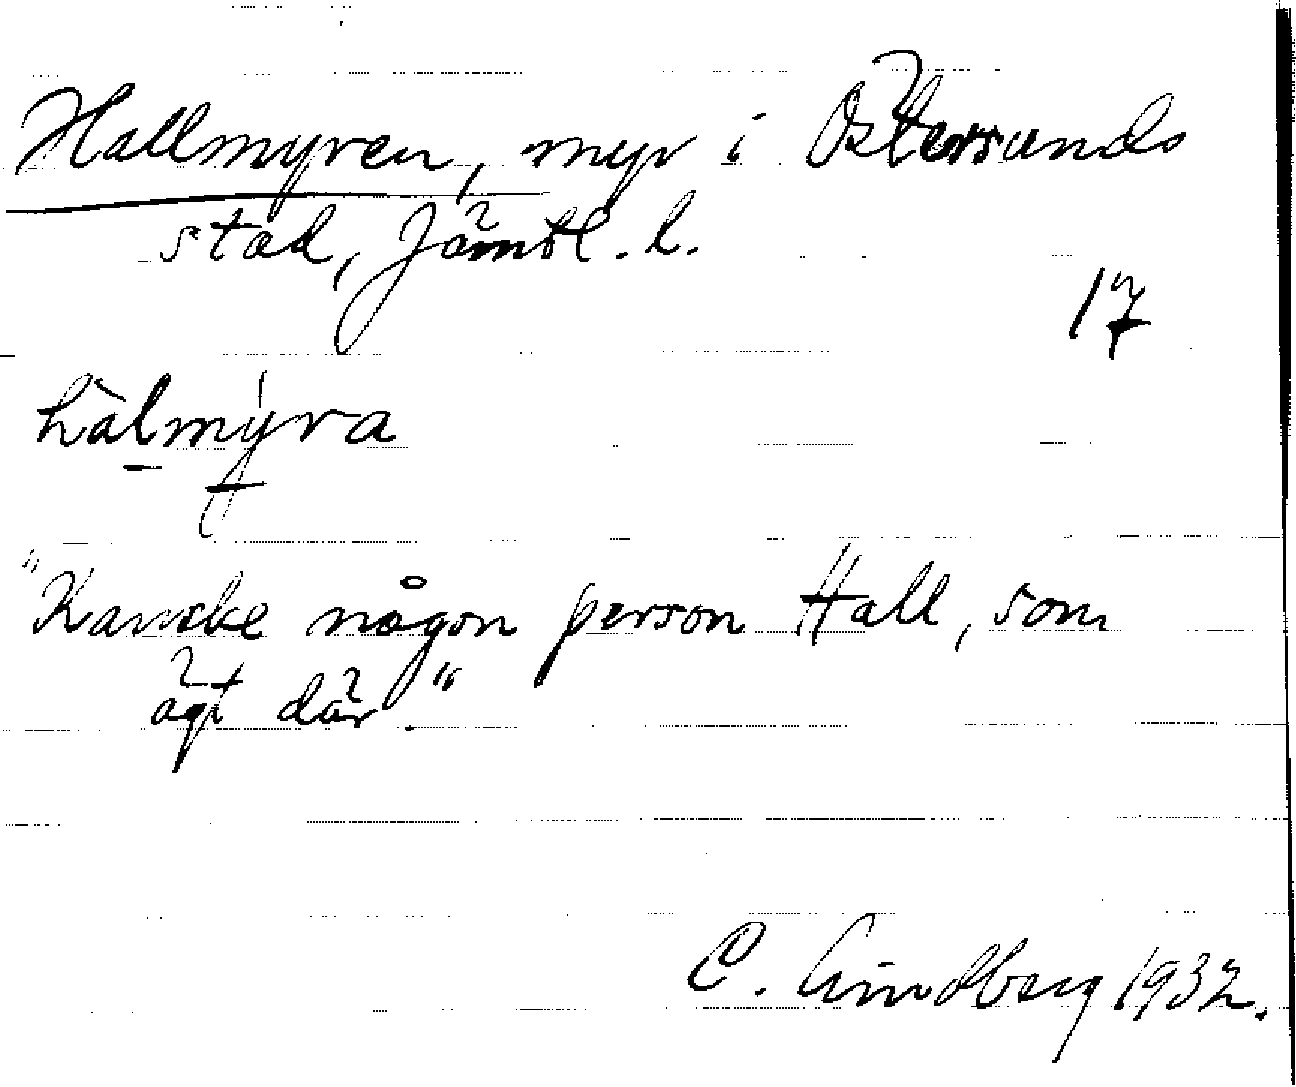 Hallmyren, myr i Östersunds
stad, Jämtl. l.
17
hàlmýra
"Kanske någon person Hall, som
ägt där."
C. Lindberg 1932.